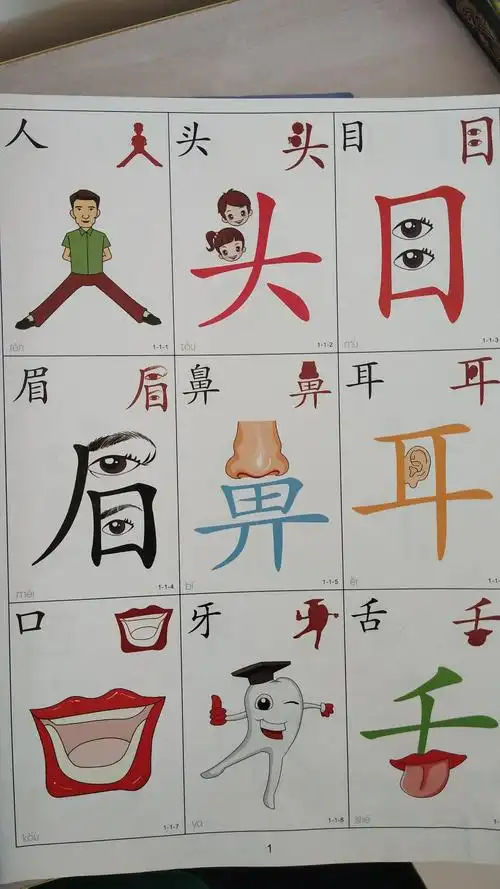 人
头
目
头
目
rén
1-1-1
tóu
1-1-2
mù
1-1-3
眉
眉
鼻
鼻
耳
耳
眉
鼻
耳
méi
1-1-4
bí
1-1-5
ěr
口
牙
舌
舌
kǒu
1-1-7
yá
1-1-8
shé
1